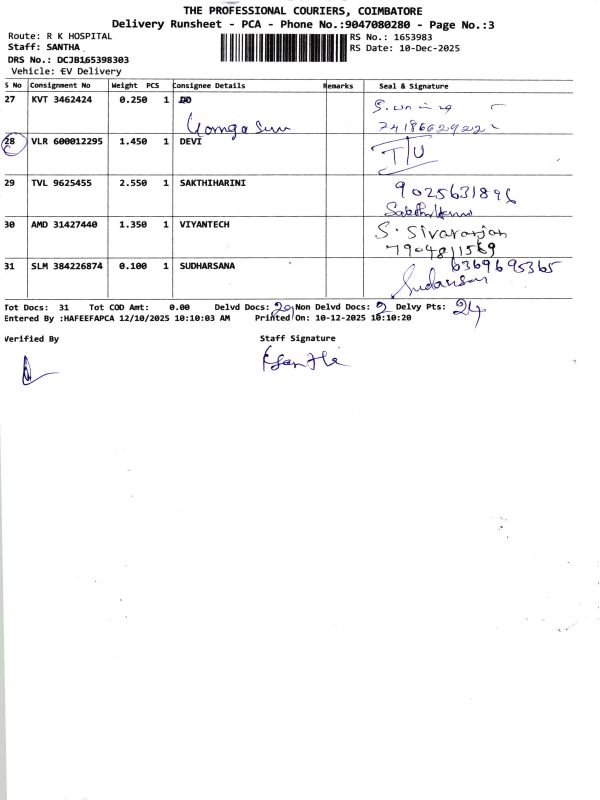 THE PROFESSIONAL COURIERS, COIMBATORE
Delivery Runsheet - PCA - Phone No.:9047080280 - Page No.:3
Route: R K HOSPITAL
RS No.: 1653983
Staff: SANTHA
RS Date: 10-Dec-2025
DRS No.: DCJB165398303
Vehicle: EV Delivery
S No Consignment No Weight PCS Consignee Details Remarks Seal & Signature
27 KVT 3462424 0.250 1
28 VLR 600012295 1.450 1 DEVI
29 TVL 9625455 2.550 1 SAKTHIHARINI
9025631896
30 AMD 31427440 1.350 1 VIYANTECH S. Sivaranjan
7904811569
31 SLM 384226874 0.100 1 SUDHARSANA 6369695365
Sudarsan
Tot Docs: 31 Tot COD Amt: 0.00 Delvd Docs: 29 Non Delvd Docs: 2 Delvy Pts: 24
Entered By :HAFEEFAPCA 12/10/2025 10:10:03 AM Printed On: 10-12-2025 10:10:20
Verified By Staff Signature